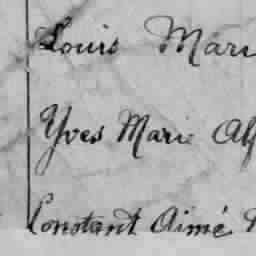 Louis Mari
Yves Marie Al
Constant Aimé